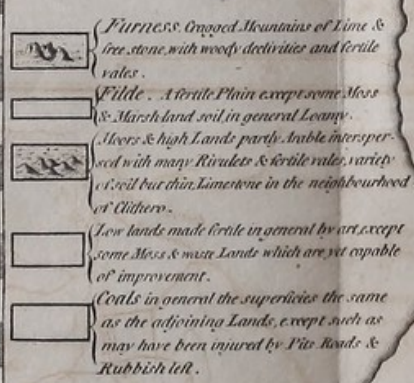 Furness. Cragged Mountains of Lime &
free stone, with woody declivities and fertile
vales.
Filde. A fertile Plain except some Moss
& Marsh land soil in general Loamy.
Moors & high Lands partly Arable intersper-
sed with many Rivulets & fertile vales, variety
of soil but thin, Limestone in the neighbourhood
of Clithero.
Low lands made fertile in general by art, except
some Moss & waste Lands which are yet capable
of improvement.
Coals in general the superficies the same
as the adjoining Lands, except such as
may have been injured by Pits Roads &
Rubbish left.